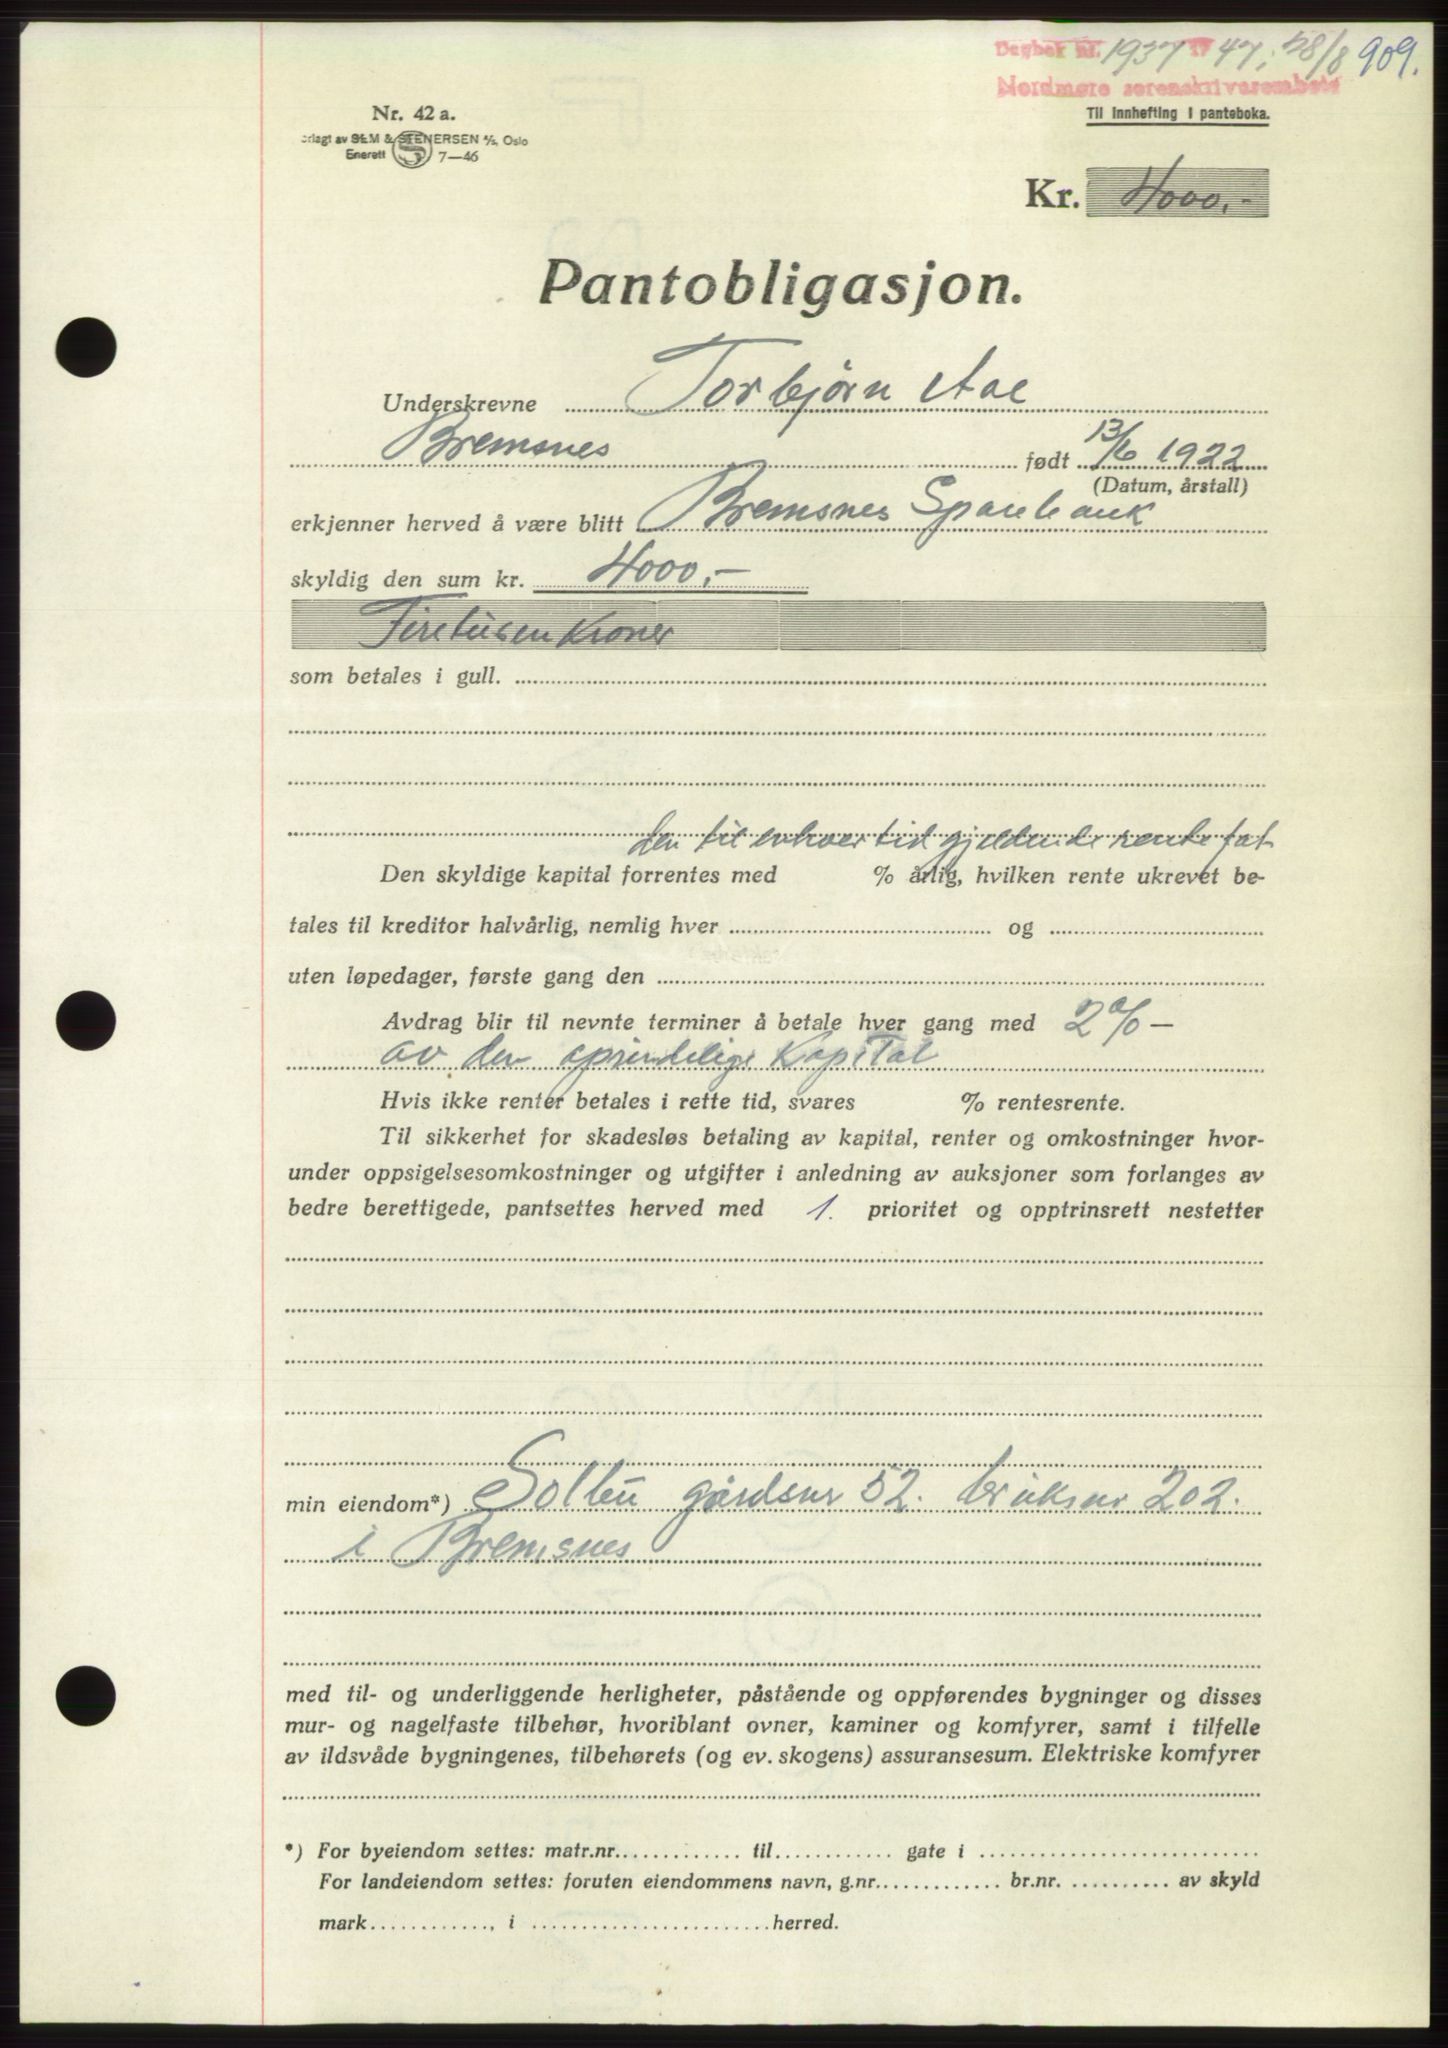 Dagbok nr. 1937 1947, 28/8 909.
Nordmøre sorenskriverembete
Til innhefting i panteboka.
Nr. 42 a.
orlagt av SEM & STENERSEN A/S, Oslo
Enerett S 7—46
Kr. 4000,-
Pantobligasjon.
Underskrevne Torbjørn Aae
Bremsnes født 13/6 1922
(Datum, årstall)
erkjenner herved å være blitt Bremsnes Sparebank
skyldig den sum kr. 4000,-
Firetusen kroner
som betales i gull.
den til enhver tid gjeldende rentefot
Den skyldige kapital forrentes med % årlig, hvilken rente ukrevet be-
tales til kreditor halvårlig, nemlig hver og
uten løpedager, første gang den
Avdrag blir til nevnte terminer å betale hver gang med 2% —
av den oprindelige Kapital
Hvis ikke renter betales i rette tid, svares % rentesrente.
Til sikkerhet for skadesløs betaling av kapital, renter og omkostninger hvor-
under oppsigelsesomkostninger og utgifter i anledning av auksjoner som forlanges av
bedre berettigede, pantsettes herved med 1. prioritet og opptrinsrett nestetter
min eiendom*) Solbu gårdsnr 52. bruksnr 202.
i Bremsnes
med til- og underliggende herligheter, påstående og oppførendes bygninger og disses
mur- og nagelfaste tilbehør, hvoriblant ovner, kaminer og komfyrer, samt i tilfelle
av ildsvåde bygningenes, tilbehørets (og ev. skogens) assuransesum. Elektriske komfyrer
*) For byeiendom settes: matr.nr. til gate i
For landeiendom settes: foruten eiendommens navn, g.nr. br.nr. av skyld
mark , i herred.